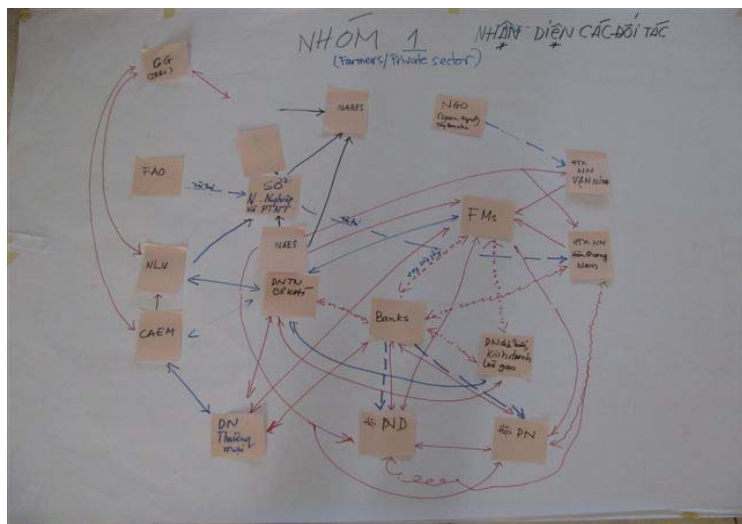 NHÓM 1
NHẬN DIỆN CÁC ĐỐI TÁC
(Farmers/Private sector)
GG
NARES
NGO
FAO
SỞ
N. Nghiệp
và PTNT
HTX
NN
VẠN NINH
FMs
NAES
HTX NN
Nam
NLU
DNTN
CƠ KHÍ
Banks
CAEM
Kinh doanh
lúa gạo
DN
Thương
mại
Hội ND
Hội DN